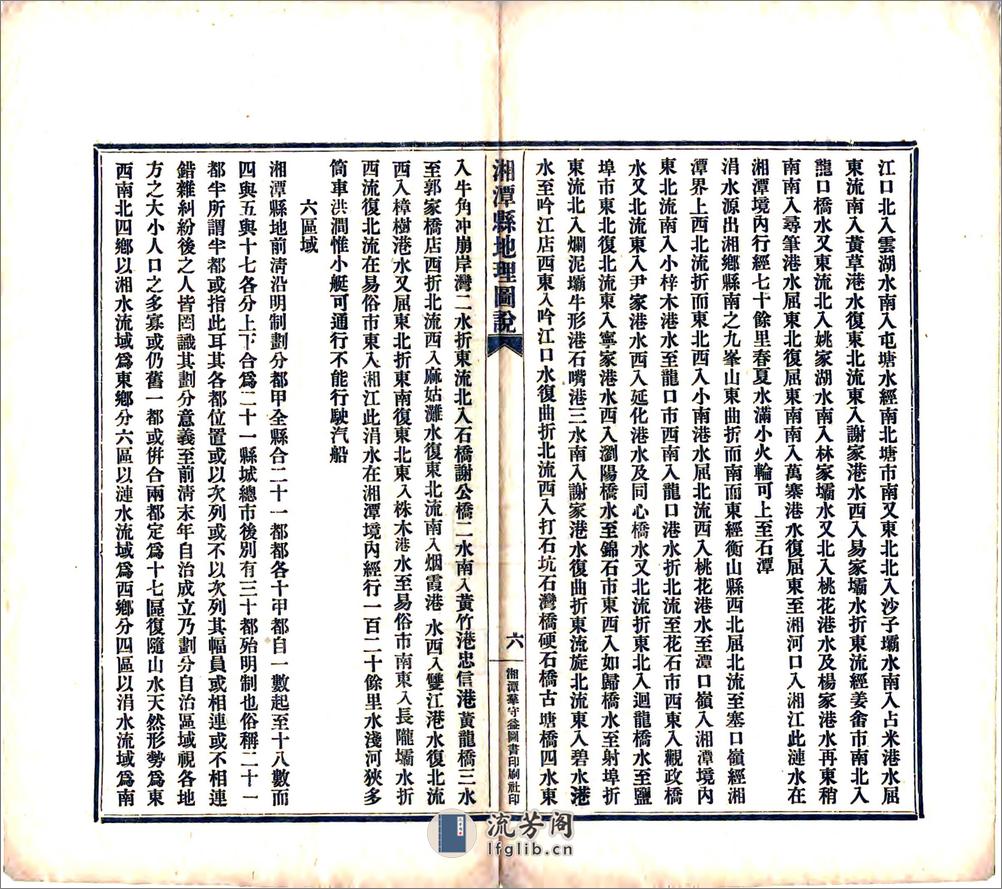 江口北入雲湖水南入屯塘水經南北塘市南又東北北入沙子壩水南入占米港水屈
東流南入黃草港水復東北流東入謝家港水西入易家壩水折東流經姜畬市南北入
龍口橋水又東流北入姚家湖水南入林家壩水又北入桃花港水及楊家港水再東稍
南南入尋筆港水屈東北復屈東南南入萬寨港水復屈東至湘河口入湘江此漣水在
湘潭境內行經七十餘里春夏水滿小火輪可上至石潭
涓水源出湘鄉縣南之九峯山東曲折而南而東經衡山縣西北屈北流至塞口嶺經湘
潭界上西北流折而東北西入小南港水屈北流西入桃花港水至潭口嶺入湘潭境內
東北流南入小梓木港水至龍口市西南入龍口港水折北流至花石市西東入觀政橋
水又北流東入尹家港水西入延化港水及同心橋水又北流折東北入迴龍橋水至鹽
埠市東北復北流東入寧家港水西入瀏陽橋水至錦石市東西入如歸橋水至射埠折
東流北入爛泥壩牛形港石嘴港三水南入謝家港水復曲折東流旋北流東入碧水港
水至吟江店西東入吟江口水復曲折北流西入打石坑石灣橋硬石橋古塘橋四水東
湘潭縣地理圖說
六
湘潭華守益圖書印刷社印
入牛角冲崩岸灣二水折東流北入石橋謝公橋二水南入黃竹港忠信港黃龍橋三水
至郭家橋店西折北流西入麻姑灘水復東北流南入烟霞港水西入雙江港水復北流
西入樟樹港水又屈東北折東南復東北東入株木港水至易俗市南東入長隴壩水折
西流復北流在易俗市東入湘江此涓水在湘潭境內經行一百二十餘里水淺河狹多
筒車洪澗惟小艇可通行不能行駛汽船
六區域
湘潭縣地前清沿明制劃分都甲全縣合二十一都都各十甲都自一數起至十八數而
四與五與十七各分上下合爲二十一縣城總市後別有三十都殆明制也俗稱二十一
都半所謂半都或指此耳其各都位置或以次列或不以次列其幅員或相連或不相連
錯雜糾紛後之人皆罔識其劃分意義至前清末年自治成立乃劃分自治區域視各地
方之大小人口之多寡或仍舊一都或併合兩都定爲十七區復隨山水天然形勢爲東
西南北四鄉以湘水流域爲東鄉分六區以漣水流域爲西鄉分四區以涓水流域爲南
流芳阁
lfglib.cn